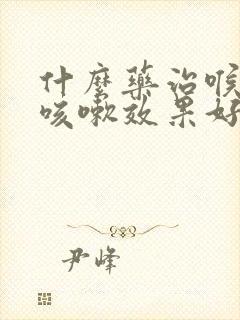 什麼藥治喉
咳嗽效果好
尹峰